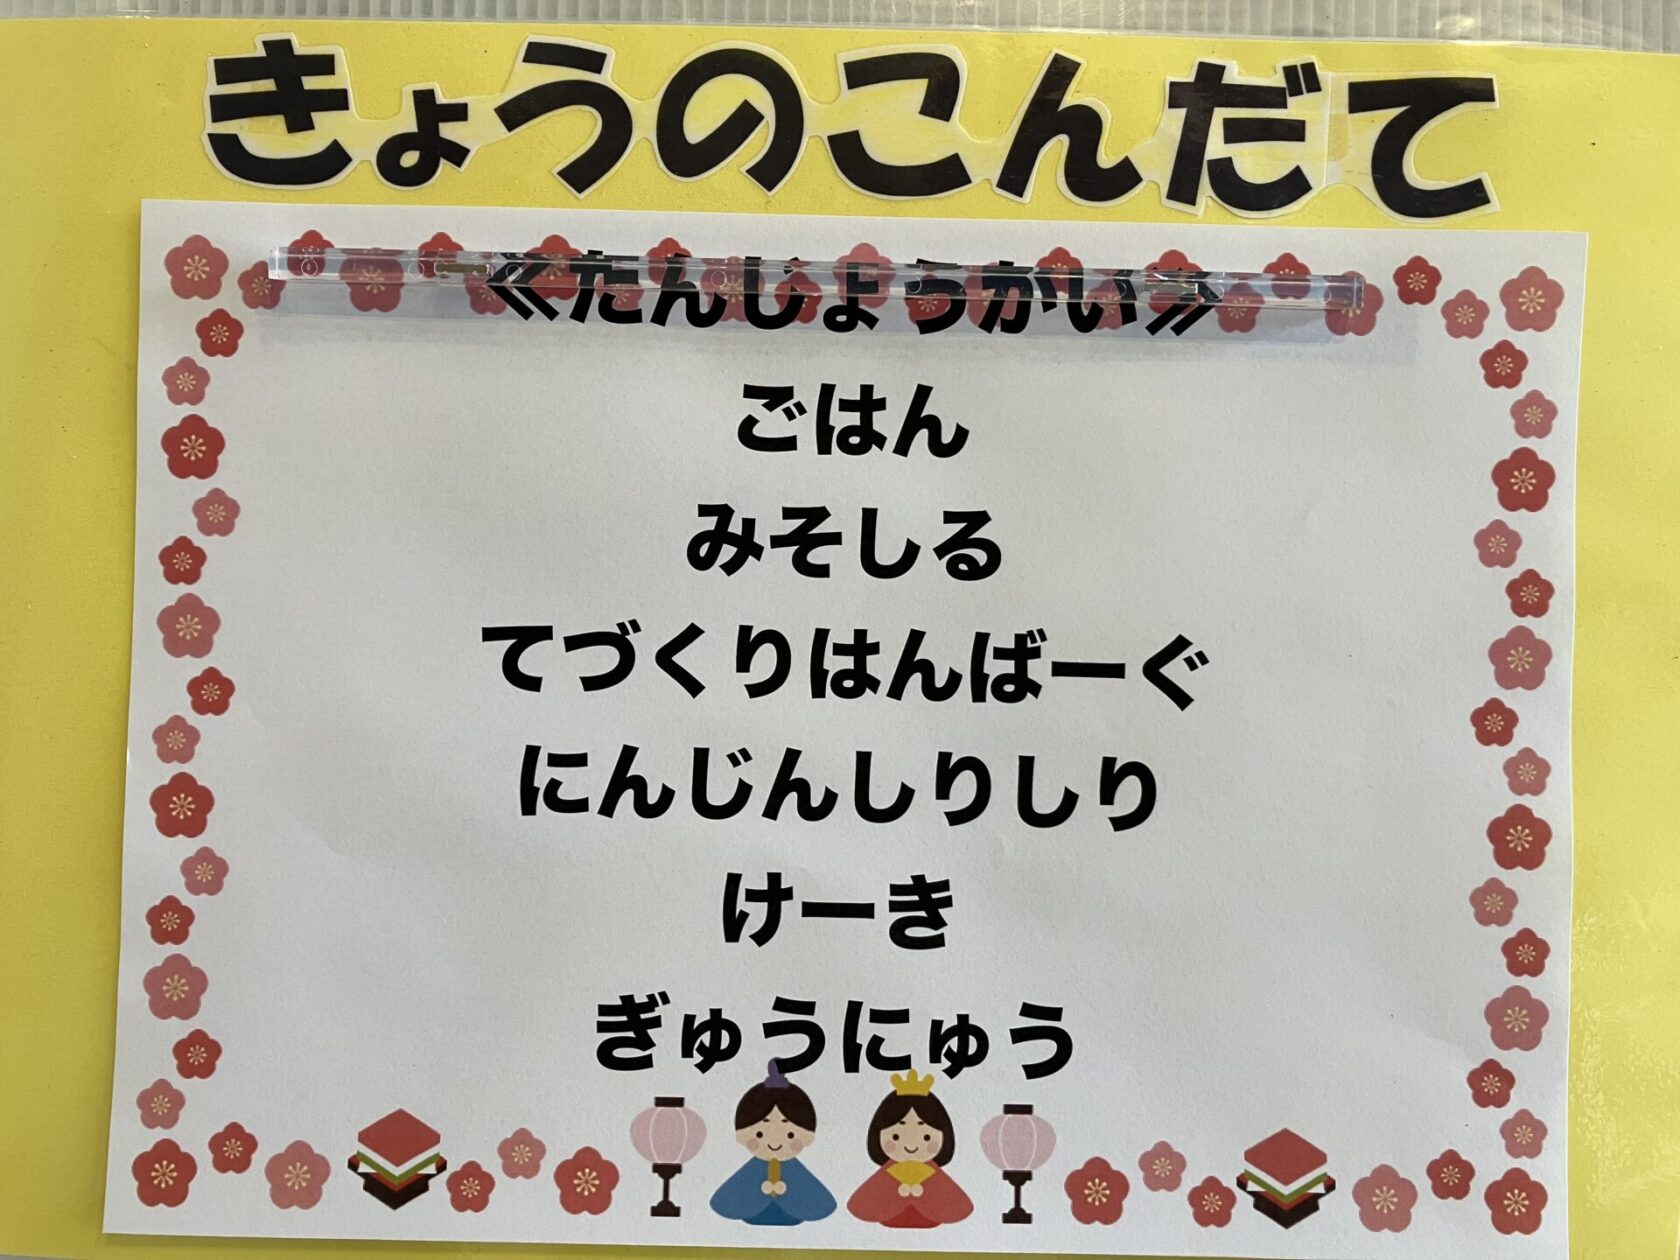 きょうのこんだて
≪たんじょうかい≫
ごはん
みそしる
てづくりはんばーぐ
にんじんしりしり
けーき
ぎゅうにゅう